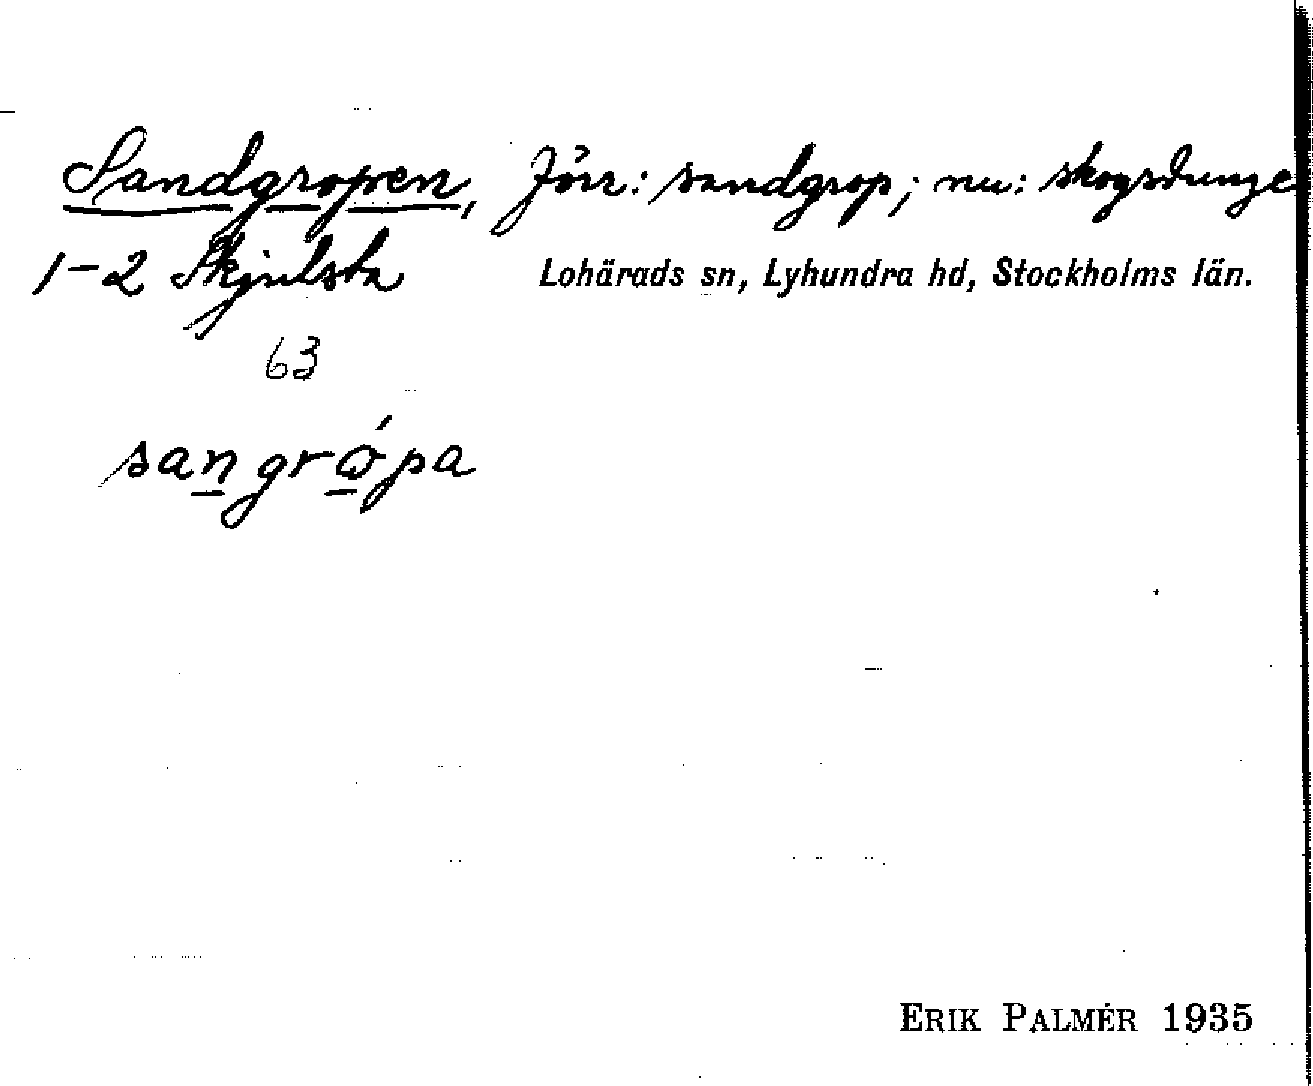 Sandgropen, Förr: sandgrop; nu: skogsdunge
1-2 Skjulsta Lohärads sn, Lyhundra hd, Stockholms län.
63
sangrópa
ERIK PALMÉR 1935